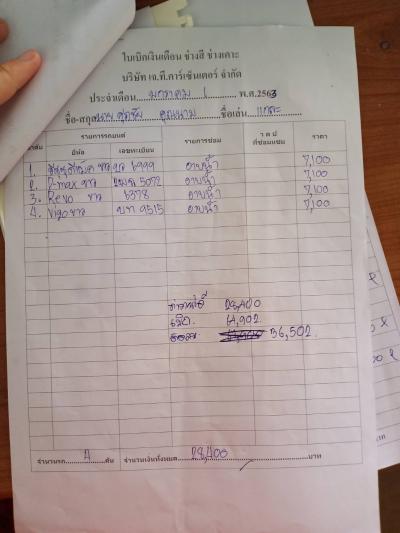 ใบเบิกเงินเดือน ช่างสี ช่างเคาะ
บริษัท เจ.ที.คาร์เซ็นเตอร์ จำกัด
ประจำเดือน มกราคม 1 พ.ศ.2563
ชื่อ-สกุล ชื่อเล่น
ลำดับ รายการรถยนต์ รายการซ่อม ว ด ป ที่ซ่อมแซม ราคา
ยี่ห้อ เลขทะเบียน
1. 6999 อาบน้ำ 7,100
2. D-max ขาว 5072 อาบน้ำ 7,100
3. Revo ขาว 6378 อาบน้ำ 7,100
4. Vigo ขาว บท 9515 อาบน้ำ 7,100
28,400
เบิก
36,502
จำนวนรถ 4 คัน จำนวนเงินทั้งหมด 28,400 บาท